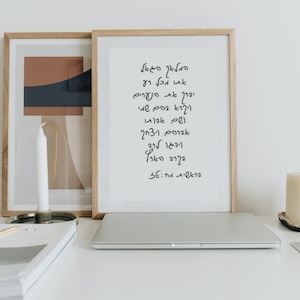 המלאך הגאל
אתי מכל רע
יברך את הנערים
ויקרא בהם שמי
ושם אבתי
אברהם ויצחק
וידגו לרב
בקרב הארץ
בראשית מח:טז